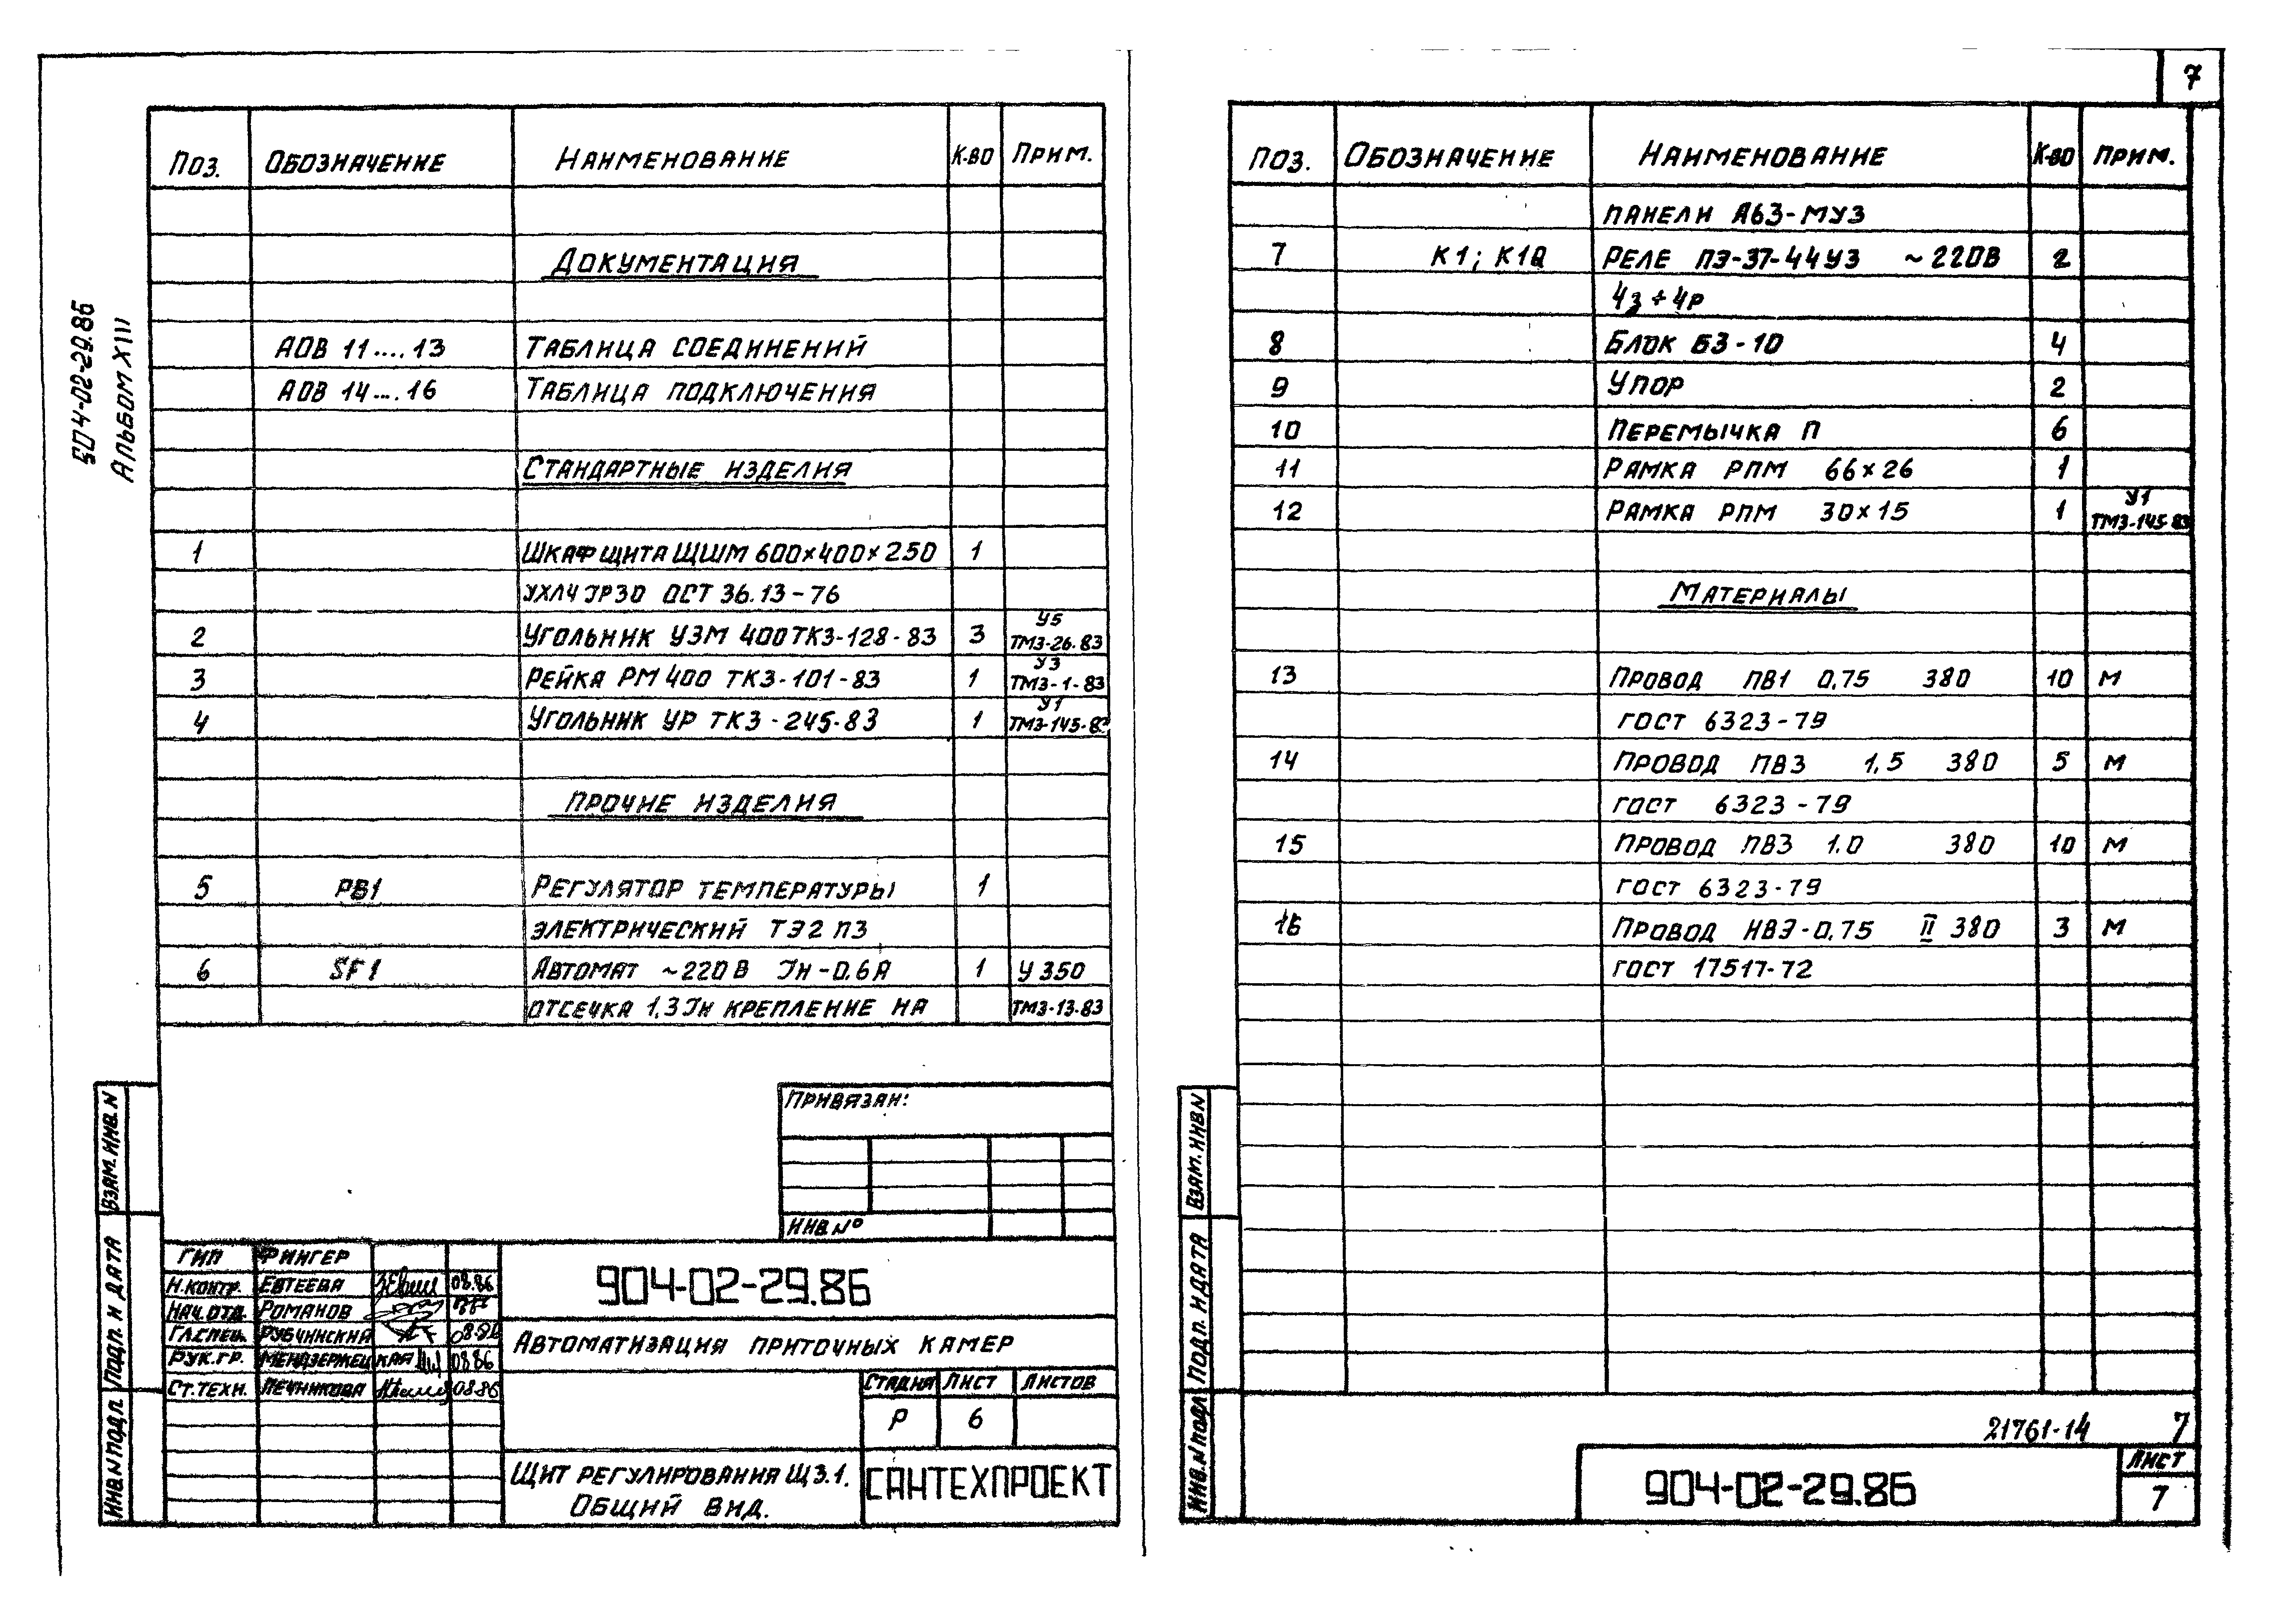 7
904-02-29.86
Альбом XIII
Поз. Обозначение Наименование К-во Прим.
Документация
АОВ 11....13 Таблица соединений
АОВ 14....16 Таблица подключения
Стандартные изделия
1 Шкаф щита ЩШМ 600×400×250 1
УХЛ4 IP30 ОСТ 36.13-76
2 Угольник УЗМ 400 ТКЗ-128-83 3 У5 ТМЗ-26.83
3 Рейка РМ 400 ТКЗ-101-83 1 У3 ТМЗ-1-83
4 Угольник УР ТКЗ-245-83 1 У1 ТМЗ-145-83
Прочие изделия
5 РВ1 Регулятор температуры 1
электрический ТЭ2 ПЗ
6 SF1 Автомат ~220В Iн-0.6А 1 У350
отсечка 1,3Iн крепление на ТМЗ-13.83
Привязан:
Инв. №
ГИП Фингер
Н.контр. Евтеева 08.86
Нач.отд. Романов
Гл.спец. Рубчинский 08.86
Рук.гр. Мендзержецкая 08.86
Ст.техн. Печникова 08.86
904-02-29.86
Автоматизация приточных камер
Стадия Лист Листов
Р 6
Щит регулирования Щ3.1.
Общий вид.
САНТЕХПРОЕКТ
Взам. инв. N
Подп. и дата
Инв. N подл.
Поз. Обозначение Наименование К-во Прим.
панели А63-МУ3
7 К1; К1Q Реле ПЭ-37-44У3 ~220В 2
4з+4р
8 Блок БЗ-10 4
9 Упор 2
10 Перемычка П 6
11 Рамка РПМ 66×26 1
12 Рамка РПМ 30×15 1 У1 ТМЗ-145-83
Материалы
13 Провод ПВ1 0,75 380 10 м
ГОСТ 6323-79
14 Провод ПВ3 1,5 380 5 м
ГОСТ 6323-79
15 Провод ПВ3 1.0 380 10 м
ГОСТ 6323-79
16 Провод НВЭ-0,75 II 380 3 м
ГОСТ 17517-72
Взам. инв N
Подп. и дата
Инв. N подл
21761-14 7
904-02-29.86
Лист
7